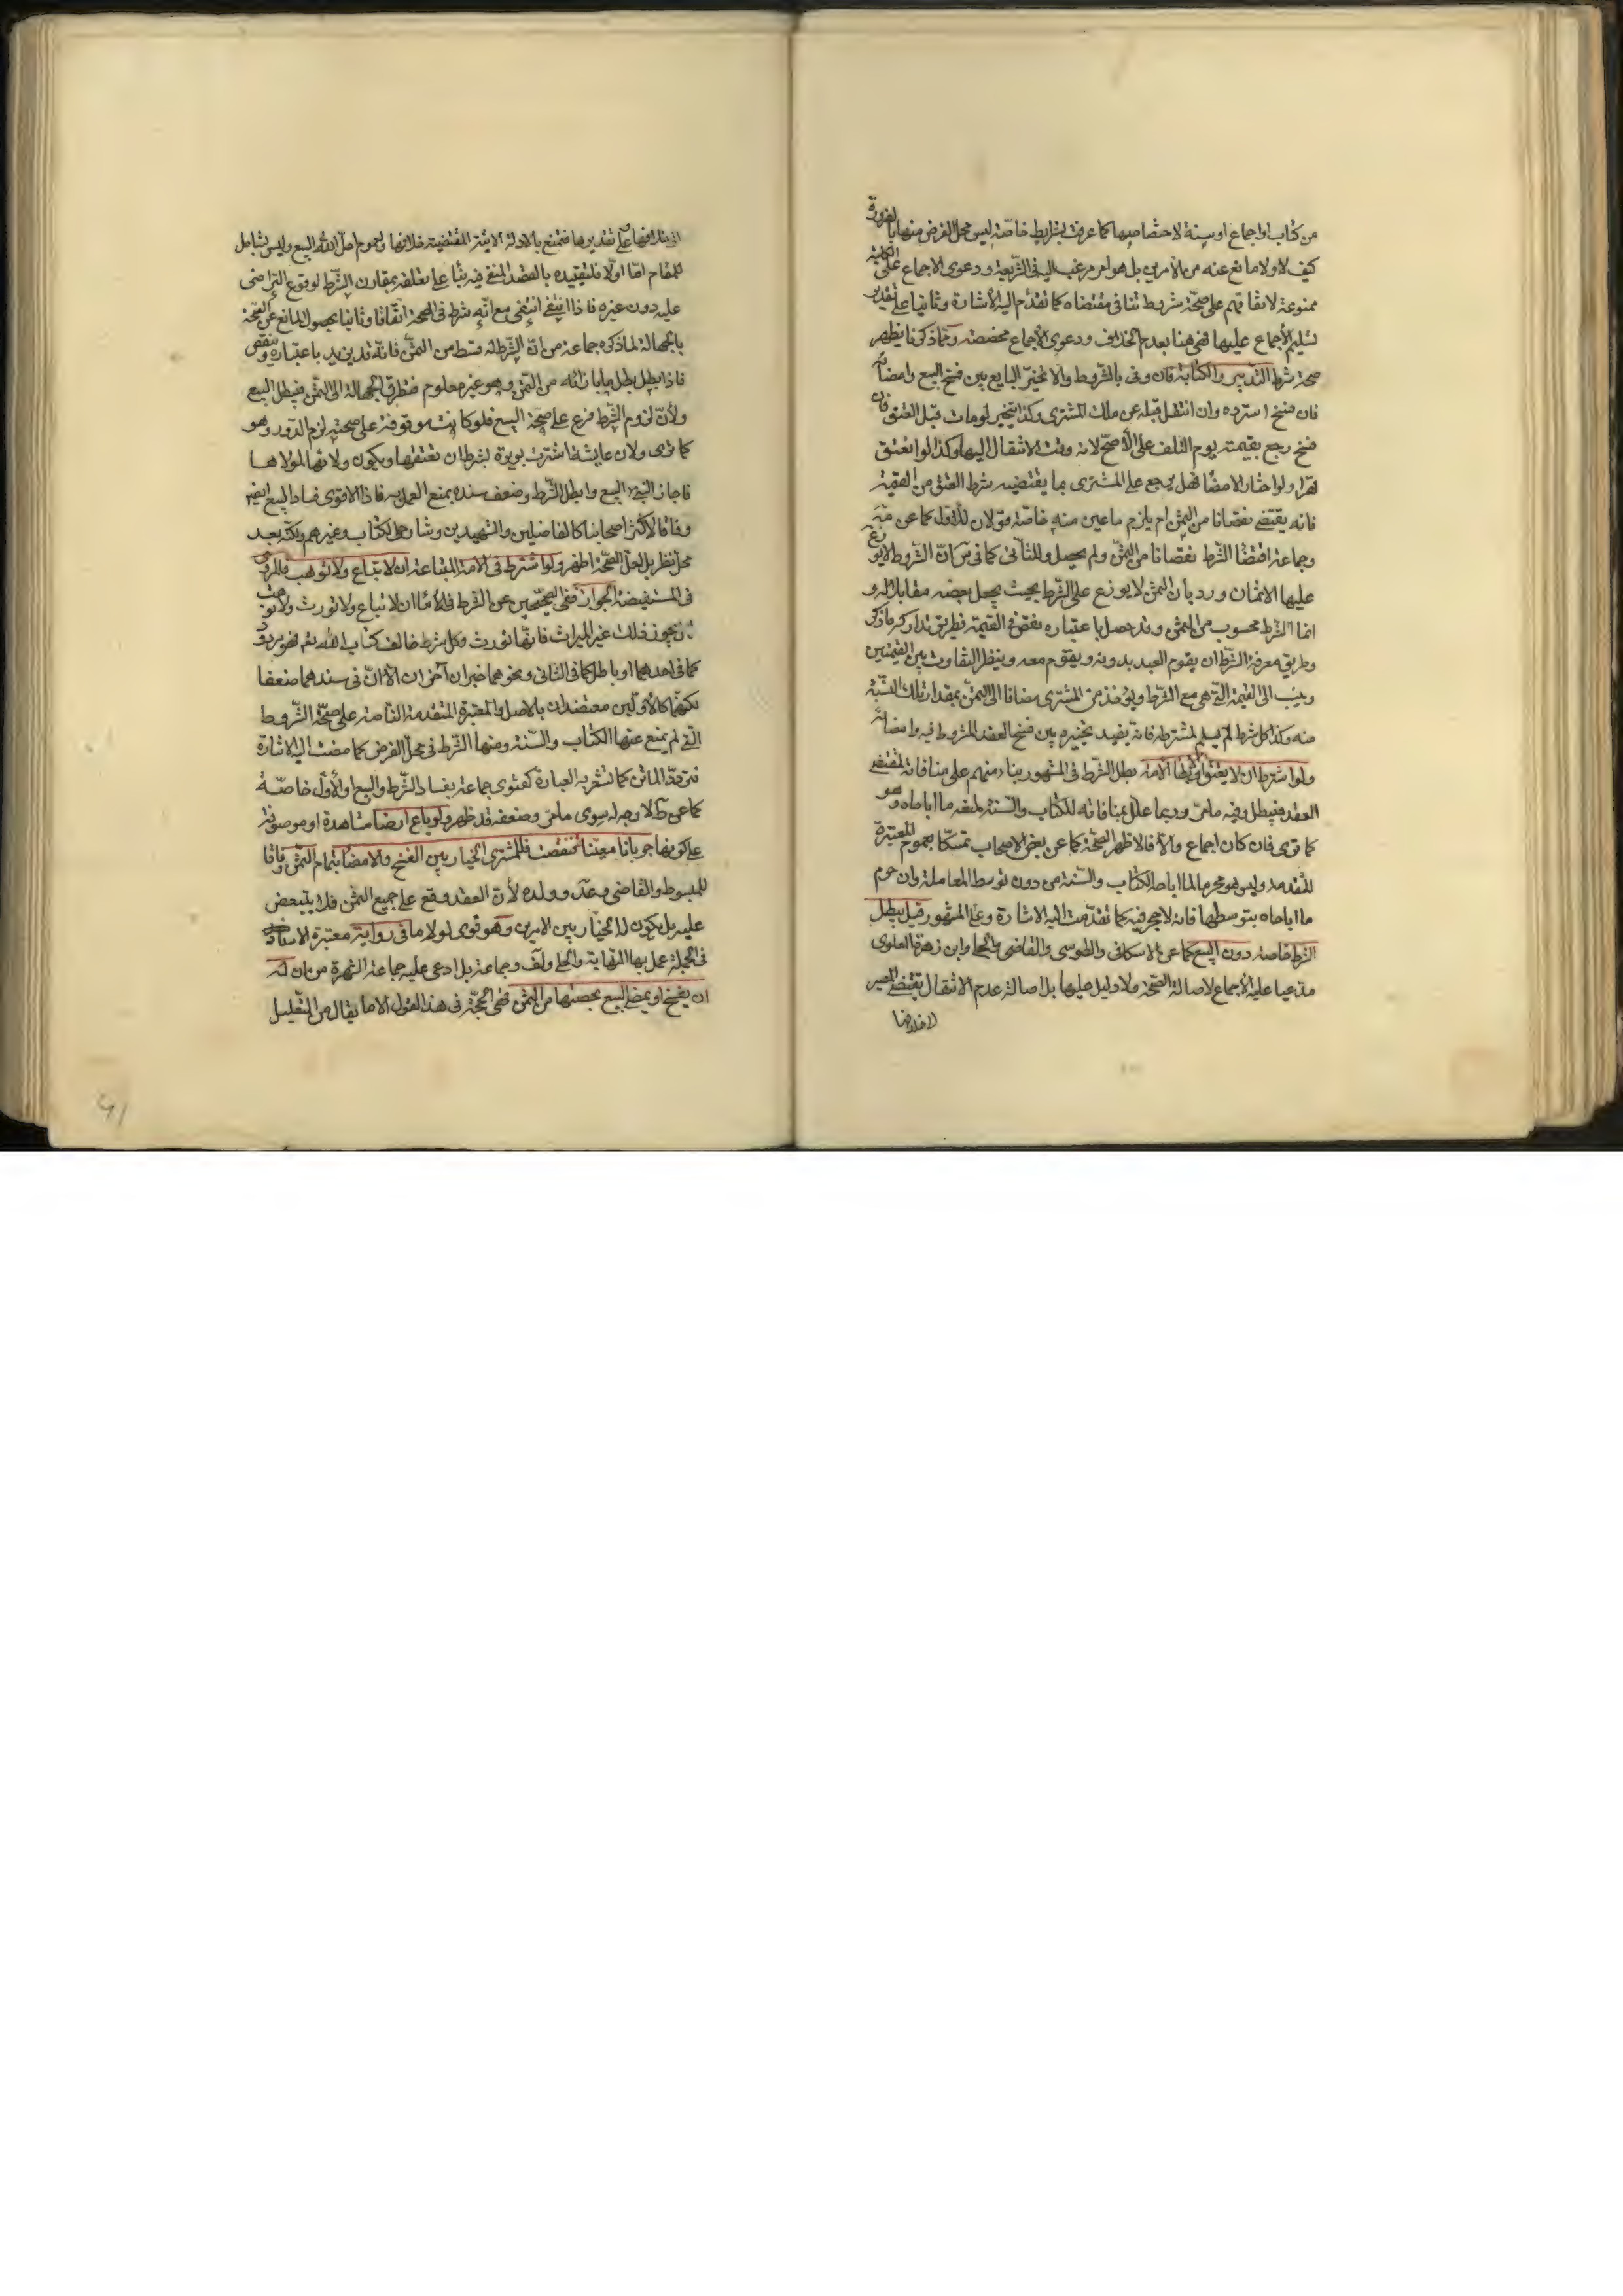 من كتاب او اجماع او سنة لاختصاصها كما عرفت بشرايط خاصة ليس محل الفرض منها بالضرورة
كيف لا ولا مانع عنه من الأمرين بل هو امر مرغب اليه فى الشريعة ودعوى الاجماع على الكلية
ممنوعة لاتفاقهم على صحة شروط تنافى مقتضاه كما تقدم اليه الاشارة وثانيا على تقدير
تسليم الأجماع عليها فهى هنا بعدم الخلاف ودعوى الأجماع مخصصة ومما ذكرنا يظهر
صحة شرط التدبير والكتابة فان وفى بالشروط والا تخير البايع بين فسخ البيع وامضائه
فان فسخ استرده وان انتقل قبله عن ملك المشترى وكذا يتخير لو مات قبل العتق فان
فسخ رجع بقيمته يوم التلف على الأصح لانه وقت الانتقال اليها وكذا لو انعتق
قهرا ولو اختار الامضا فهل يرجع على المشترى بما يقتضيه شرط العتق من القيمة
فانه يقتضى نقصانا من الثمن ام يلزم ما عين منه خاصة قولان للأول كما عن
وجماعة اقتضا الشرط نقصانا من الثمن ولم يحصل وللثانى كما فى ان الشروط لا يوزع
عليها الاثمان ورد بان الثمن لا يوزع على الشرط بحيث يجعل بعضه مقابلا له و
انما الشرط محسوب من الثمن وقد حصل باعتباره نقص فى القيمة فطريق تداركه ما ذكر
وطريق معرفة الشرط ان يقوم العبد بدونه ويقوم معه وينظر التفاوت بين القيمتين
وينسب الى القيمة التى هى مع الشرط ويؤخذ من المشترى مضافا الى الثمن بمقدار تلك النسبة
منه وكذا كل شرط لم يسلم لمشترطه فانه يفيد تخييره بين فسخ العقد المشروط فيه وامضائه
ولو اشترط ان لا يعتق او لا يطأ الامة بطل الشرط فى المشهور بناء منهم على منافاته لمقتضى
العقد فيبطل وفيه ما مر وربما علل بمنافاته للكتاب والسنة لمنعه ما اباحاه وهو
كما ترى فان كان اجماع والا فالاظهر الصحة كما عن بعض الاصحاب تمسكا بعموم المعتبرة
المتقدمة وليس هو محرما لما اباحه الكتاب والسنة من دون توسط المعاملة وان حرم
ما اباحاه بتوسطها فانه لا حجر فيه كما تقدمت اليه الاشارة وعلى المشهور قيل يبطل
الشرط خاصة دون البيع كما عن الاسكافى والطوسى والقاضى والحلى وابن زهرة العلوى
مدعيا عليه الأجماع لاصالة الصحة ولا دليل عليها بل اصالة عدم الانتقال يقتضى المصير
الى خلافها
الى خلافها على تقديرها فتمنع بالادلة الاتية المقتضية خلافها ولعموم احل الله البيع وليس بشامل
للمقام اما اولا فلتقييده بالقصد المنفى فيه بناء على تعلقه بمقارن الشرط لوقوع التراضى
عليه دون غيره فاذا انتفى انتفى مع انه شرط فى الصحة اتفاقا وثانيا بحصول المانع عن الصحة
بالجهالة لما ذكره جماعة من ان للشرط قسط من الثمن فانه قد يزيد باعتباره وينقص
فاذا بطل بطل ما بازائه من الثمن وهو غير معلوم فتطرق الجهالة الى الثمن فيبطل البيع
ولأن لزوم الشرط فرع على صحة البيع فلو كانت موقوفة على صحته لزم الدور وهو
كما ترى ولان عايشة اشترت بريرة بشرط ان تعتقها ويكون ولائها لمولاها
فاجاز النبى البيع وابطل الشرط وضعف سنده يمنع العمل به فاذا الاقوى فساد البيع ايضا
وفاقا لاكثر اصحابنا كالفاضلين والشهيدين وشارحى الكتاب وغيرهم ولكنه بعد
محل نظر بل لعل الصحة اظهر ولو اشترط فى الامة المبتاعة ان لا تباع ولا توهب فالمروى
فى المستفيضة الجواز ففى الصحيحين عن الشرط فى الأماء ان لا تباع ولا تورث ولا توهب
يجوز ذلك غير الميراث فانها تورث وكل شرط خالف كتاب الله تعالى فهو مردود
كما فى احدهما او باطل كما فى الثانى ونحوهما خبران آخران الا ان فى سندهما ضعفا
لكنهما كالأولين معتضدان بالاصل والمعتبرة المتقدمة الناصة على صحة الشروط
التى لم يمنع عنها الكتاب والسنة ومنها الشرط فى محل الفرض كما مضت اليه الاشارة
فتردد الماتن كما تشعر به العبارة كفتوى جماعة بفساد الشرط والبيع او الأول خاصة
كما عن ط لا وجه له سوى ما مر وضعفه قد ظهر ولو باع ارضا مشاهدة او موصوفة
على كونها جربانا معينة فنقصت فللمشترى الخيار بين الفسخ والامضا بتمام الثمن وفاقا
للمبسوط والقاضى وعد وولده لأن العقد وقع على جميع الثمن فلا يتبعض
عليه بل يكون له الخيار بين الامرين وهو قوى لولا ما فى رواية معتبرة الاسناد
فى الجملة عمل بها النهاية والحلى ولف وجماعة بل ادعى عليه جماعة الشهرة من ان له
ان يفسخ او يمضى البيع بحصتها من الثمن فهى الحجة فى هذا القول الا ما يقال من التعليل